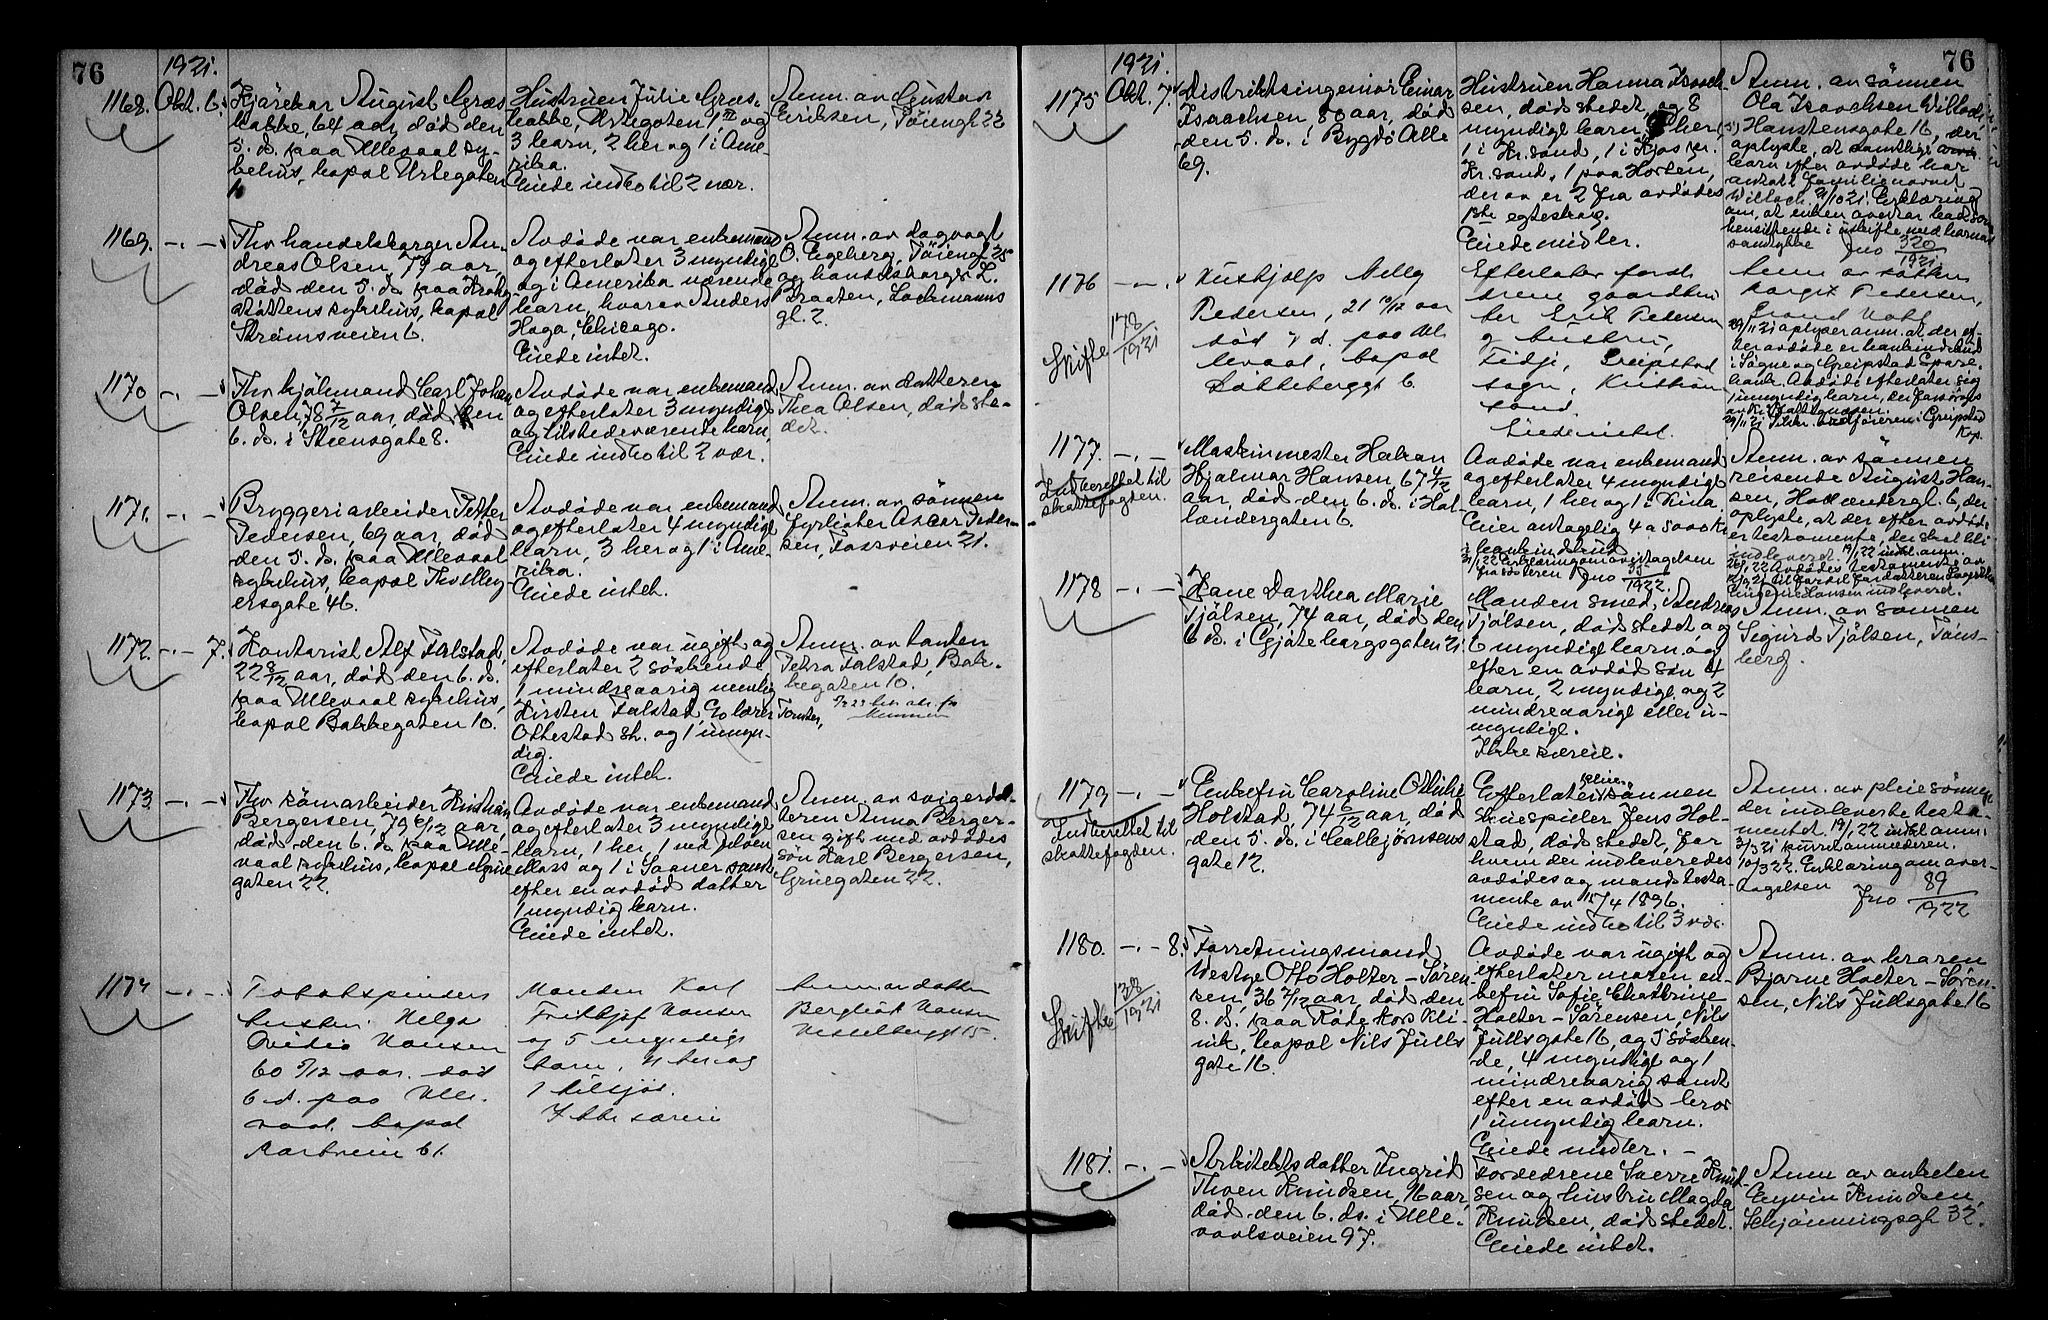 76
1921.
1168. Okt. 6.
Kjørekar August Græs-
bakke, 64 aar, død den
5. ds. paa Ullevaal sy-
kehus, bopæl Urtegaten
Hustruen Julie Græs-
bakke, Urtegaten 1, III og
3 barn, 2 her og 1 i Ame-
rika.
Eiede indbo til 2 vær.
Anm. av Gustav
Eriksen, Tøiengt 22
1169. -.- -
Fhv handelsborger An-
dreas Olsen, 79 aar,
død den 5. ds. paa Krohg-
støttens sykehus, bopæl
Strømsveien 6.
Avdøde var enkemand
og efterlater 3 myndige
og i Amerika værende
barn, hvorav Anders
Haga, Chicago.
Eiede intet.
Anm. av dagvagt
O. Engeberg, Tøiengt 35
og handelsborger L.
Braaten, Lakmanns
gt. 2.
1170 -.- -
Fhv kjøkmand Carl Johan
Olsen, 78 7/12 aar, død den
6. ds. i Steensgate 8.
Avdøde var enkemand
og efterlater 3 myndige
og tilstedeværende barn,
Eiede indbo til 2 vær.
Anm. av datteren
Thea Olsen, dødsste-
det.
1171. -.- -
Bryggeriarbeider Petter
Pedersen, 69 aar, død
den 5. ds. paa Ullevaal
sykehus, bopæl Thv Mey-
ersgate 46.
Avdøde var enkemand
og efterlater 4 myndige
barn, 3 her og 1 i Ame-
rika.
Eiede intet.
Anm. av sønnen
fyrbøter Oscar Peder-
sen, Fossveien 21.
1172. -.- 7.
Kontorist Alf Falstad,
22 8/12 aar, død den 6. ds.
paa Ullevaal sykehus,
bopæl Bakkegaten 10.
Avdøde var ugift og
efterlater 2 søskende,
1 mindreaarig nemlig
Kirsten Falstad, c/o lærer
Ottestad st. og 1 umyn-
dig.
Eiede intet.
Anm. av tanten
Petra Falstad, Bak-
kegaten 10.
1173. -.- -
Fhv sømarbeider Kristian
Bergersen, 79 6/12 aar,
død den 6. ds. paa Ulle-
vaal sykehus, bopæl Grüne
gaten 22.
Avdøde var enkemand
og efterlater 3 myndige
barn, 1 her, 1 ved Jeløen
Moss og 1 i Saaner samt
efter en avdød datter
1 myndig barn.
Eiede intet.
Anm. av svigerdat-
teren Anna Berger-
sen gift med avdødes
søn Karl Bergersen,
Grünegaten 22.
1174 -.- -
Tobakspinders
hustru Helga
Ovidia Hansen
60 5/12 aar. død
6 d. paa Ulle-
vaal, bopæl
Maanden Karl
Fritjof Hansen
og 5 myndige
barn, 4 her og
1 tilsjøs.
Ikke særeie
Anm. av datter
Bergliot Hansen
Vesselbergt 15.
76
1921.
1175 Okt. 7.
Distriktsingeniør Einar
Isaachsen 80 aar, død
den 5. ds. i Bygdø Alle
69.
Hustruen Hanna Isaach-
sen, dødsstedet, og 8
myndige barn, 5 her,
1 i Kr.sand, 1 i Kjos pr.
Kr.sand, 1 paa Horten,
derav er 2 fra avdødes
1ste egteskap.
Eiede midler.
Anm. av sønnen
Ola Isaachsen Willoch,
Hanstensgate 16, der
oplyste, at samtlige
barn efter avdøde har
antatt familienavnet
Willoch. Erklæring
om, at enken overtar boet som
hensittende i uskifte med barnas
samtykke Jno 320/1921
1176 -.- .
178/1921
Skifte
Hushjelp Nelly
Pedersen, 21 10/12 aar
død 7 d. paa Ul-
levaal, bopæl
Løkkeberggt 6.
Efterlater foræl-
drene gaardbru-
ker Erik Pedersen
og hustru,
Tidje, Greipstad
sogn, Kristian-
sand.
Eiede intet.
Anm. av søsteren
Margit Pedersen,
Grand Hotel
29/11 21 oplyser anm. at der ef-
ter avdøde er bankindskud
i Søgne og Greipstad Spare-
bank. Avdøde efterlater sig
1 umyndig barn, der forsørges
1177. -.- -
Indberettet til
skattefogden.
Maskinmester Hakan
Hjalmar Hansen 67 4/12
aar, død den 6. ds. i Hol-
lændergaten 6.
Avdøde var enkemand
og efterlater 4 myndige
barn, 1 her og 1 i Kina.
Eier antagelig 4 a 5000 Kr
i bankindskud
31/1 22 Erklæring om overtagelsen
fra søsteren Jno 33/1922
Anm. av sønnen
reisende August Han-
sen, Hollændergt. 6, der
oplyste, at der efter avdøde
er testamente, der skal bli
indleveret 19/1 22 indk. anm.
26/1 22 Avdødes testamente av
12/9 21 til fordel for datteren Lagertha
Eugenie Hansen indleveret.
1178 -.- -
Hane Dorthea Marie
Tjølsen, 74 aar, død den
6 ds. i Gjøteborgsgaten 21.
Manden smed, Andreas
Tjølsen, dødsstedet og
6 myndige barn, og
efter en avdød søn 4
barn, 2 myndige og 2
mindreaarige eller u-
myndige.
Ikke særeie.
Anm. av sønnen
Sigurd Tjølsen, Tøns-
berg.
1179 -.- -
Indberettet til
skattefogden.
Enkefru Caroline Othilie
Holstad, 74 6/12 aar, død
den 5. ds. i Calmejørnsens
gate 12.
Efterlater pleie-
sønnen
skuespiller Jens Hol-
stad, dødsstedet, for
hvem der indleveredes
avdødes og mands testa-
mente av 15/4 1896.
Eiede indbo til 3 vær.
Anm. av pleiesønnen
der indleverte testa-
mentet. 19/1 22 indk. anm.
10/3 22. Erklæring om over-
tagelsen Jno 89/1922
1180. -.- 8.
138/1921
Skifte
Forretningsmand
Westye Otto Holter-Søren-
sen, 36 7/12 aar, død den
8. ds. paa Røde Kors Kli-
nik, bopæl Nils Juels
gate 16.
Avdøde var ugift og
efterlater moren en-
kefru Sofie Chatrine
Holter-Sørensen, Nils
Juelsgate 16, og 5 søsken-
de, 4 myndige og 1
mindreaarig samt
efter en avdød bror
1 umyndig barn.
Eiede midler. -
Anm. av broren
Bjarne Holter-Søren-
sen, Nils Juelsgate 16
1181. -.- -
Arkitekts datter Ingrid
Thoen Knudsen, 16 aar,
død den 6. ds. i Ulle-
vaalsveien 97.
Forældrene Sverre Knud-
sen og hustru Magda
Knudsen, dødsstedet.
Eiede intet.
Anm av onkelen
Eyvin Knudsen,
Schjønningsgt 32.